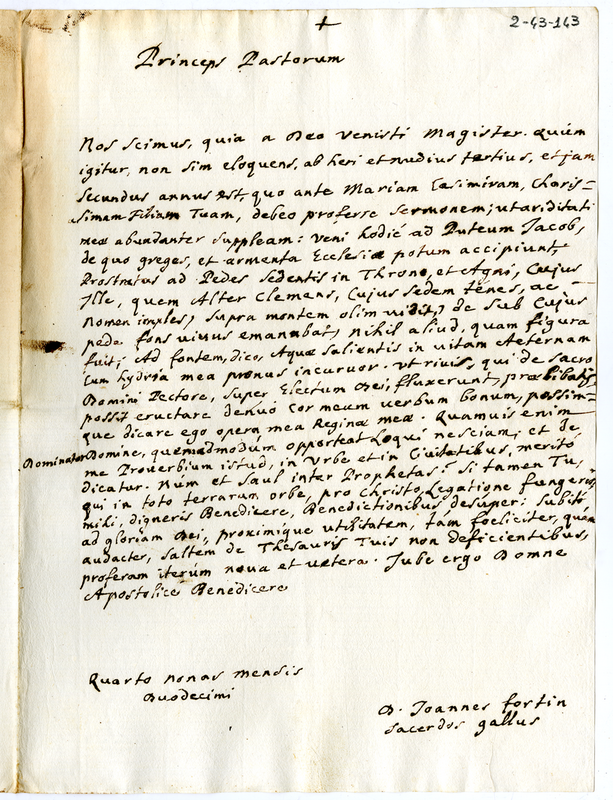 +
2-43-143
Princeps Pastorum
Nos scimus, quia a Deo venisti Magister. Quùm
igitur, non sim eloquens, ab heri et nudius tertius, et jam
secundus annus est, quo ante Mariam Casimiram, Charis-
simam Filiam Tuam, debeo proferre sermonem; ut ariditati
meæ abundanter suppleam: veni hodiè ad Puteum Jacob,
de quo greges, et armenta Ecclesiæ potum accipiunt,
Prostratus ad Pedes sedentis in Throno, et Agni, Cujus
Ille, quem Alter Clemens, Cujus sedem tenes, ac
nomen imples, supra montem olim vidit, de sub Cujus
pede fons vivus emanabat, nihil aliud, quam figura
fuit; Ad fontem, dico, Aquæ salientis in vitam Aeternam
Cum hydria mea pronus incurvor. ut rivis, qui de sacro
Domini Pectore, super Electum Dei, fluxerunt, præbibatis,
possit eructare denuò Cor meum verbum bonum, possim-
que dicare ego opera mea Reginæ meæ. Quamvis enim
Dominator Domine, quemadmodùm opporteat Loqui nesciam; et de
me Proverbium istud, in Urbe et in Civitatibus, meritò
dicatur. Num et Saul inter Prophetas? Si tamen Tu,
qui in toto terrarum orbe, pro Christo Legatione fungeris,
mihi, digneris Benedicere, Benedictionibus desùper: subitò
ad gloriam Dei, proximique utilitatem, tam foeliciter, quàm
audacter, saltem de Thesauris Tuis non deficientibus,
proferam iterùm nova et vetera. Jube ergo Domne
Apostolice Benedicere
Quarto nonas mensis
Duodecimi
D. Joannes fortin
sacerdos gallus